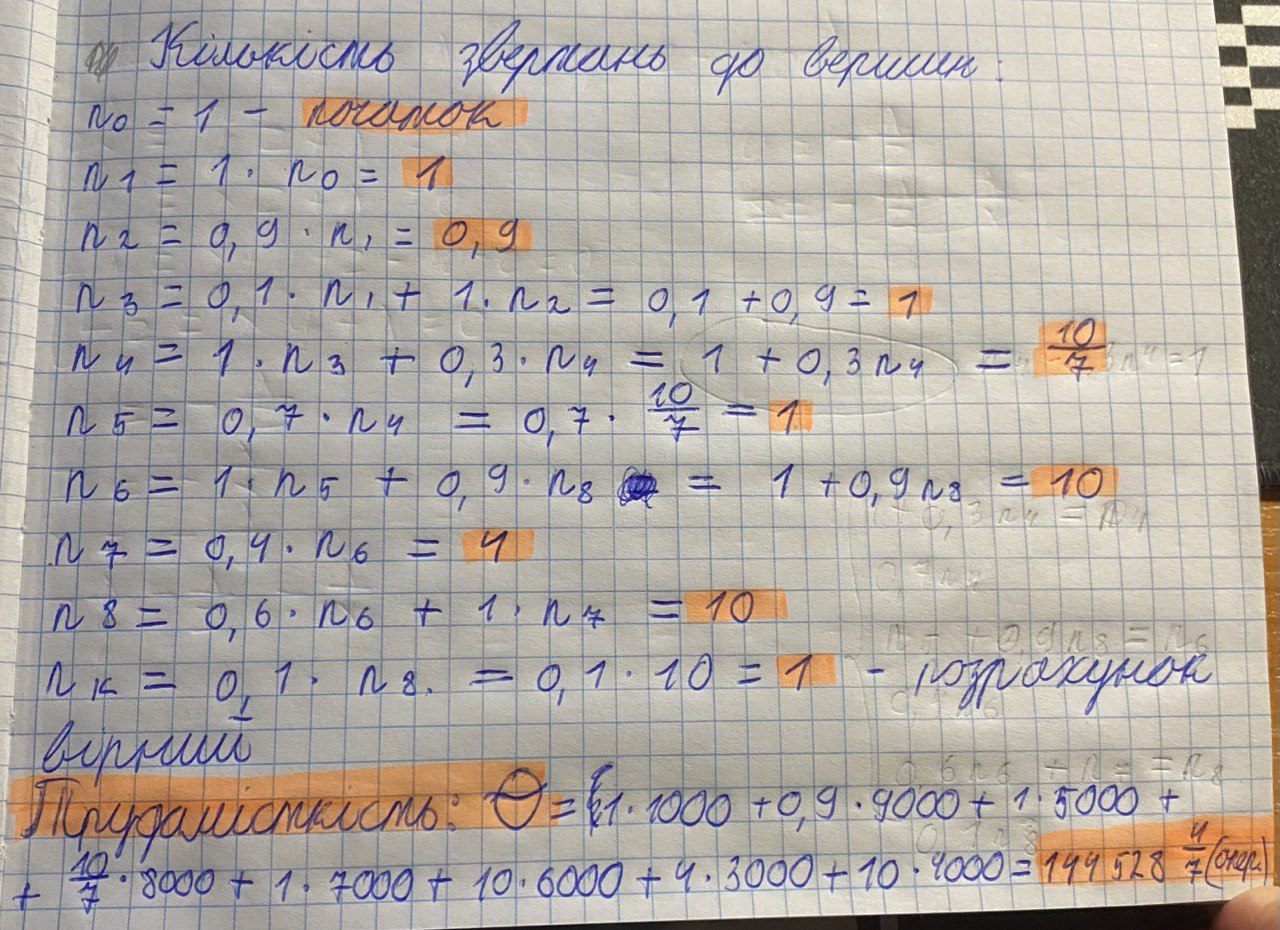 Кількість звертань до вершин:
n0 = 1 - початок
n1 = 1 · n0 = 1
n2 = 0,9 · n1 = 0,9
n3 = 0,1 · n1 + 1 · n2 = 0,1 + 0,9 = 1
n4 = 1 · n3 + 0,3 · n4 = 1 + 0,3n4 = 10/7
n5 = 0,7 · n4 = 0,7 · 10/7 = 1
n6 = 1 · n5 + 0,9 · n8 = 1 + 0,9n8 = 10
n7 = 0,4 · n6 = 4
n8 = 0,6 · n6 + 1 · n7 = 10
nk = 0,1 · n8. = 0,1 · 10 = 1 - розрахунок
вірний
Трудомісткість: Θ = 1·1000 + 0,9·9000 + 1·5000 +
+ 10/7·8000 + 1·7000 + 10·6000 + 4·3000 + 10·4000 = 144528 4/7 (опер)